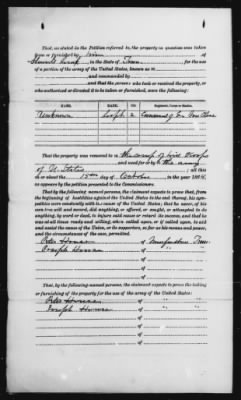 That, as stated in the Petition referred to, the property in question was taken
from or furnished by him at
in the State of Tenn for the use
of a portion of the army of the United States, known as
and commanded by
and that the persons who took or received the property, or
who authorized or directed it to be taken or furnished, were the following:
NAME. RANK. Regiment, Corps or Station.
Unknown
That the property was removed to the camp of said troops
and used for or by the army
of U. States ; all this
on or about the 15th day of October 186
as appears by the petition presented to the Commissioners.
That by the following-named persons, the claimant expects to prove that, from the
beginning of hostilities against the United States to the end thereof, his sym-
pathies were constantly with the cause of the United States; that he never, of his
own free will and accord, did anything, or offered, or sought, or attempted to do
anything, by word or deed, to injure said cause or retard its success, and that he
was at all times ready and willing, when called upon, or if called upon, to aid
and assist the cause of the Union, or its supporters, so far as his means and power,
and the circumstances of the case, permitted.
Peter of Tenn
Joseph " "
of
of
of
of
That, by the following-named persons, the claimant expects to prove the taking
or furnishing of the property for the use of the army of the United States:
Peter of " "
Joseph of " "
of
of
of
of